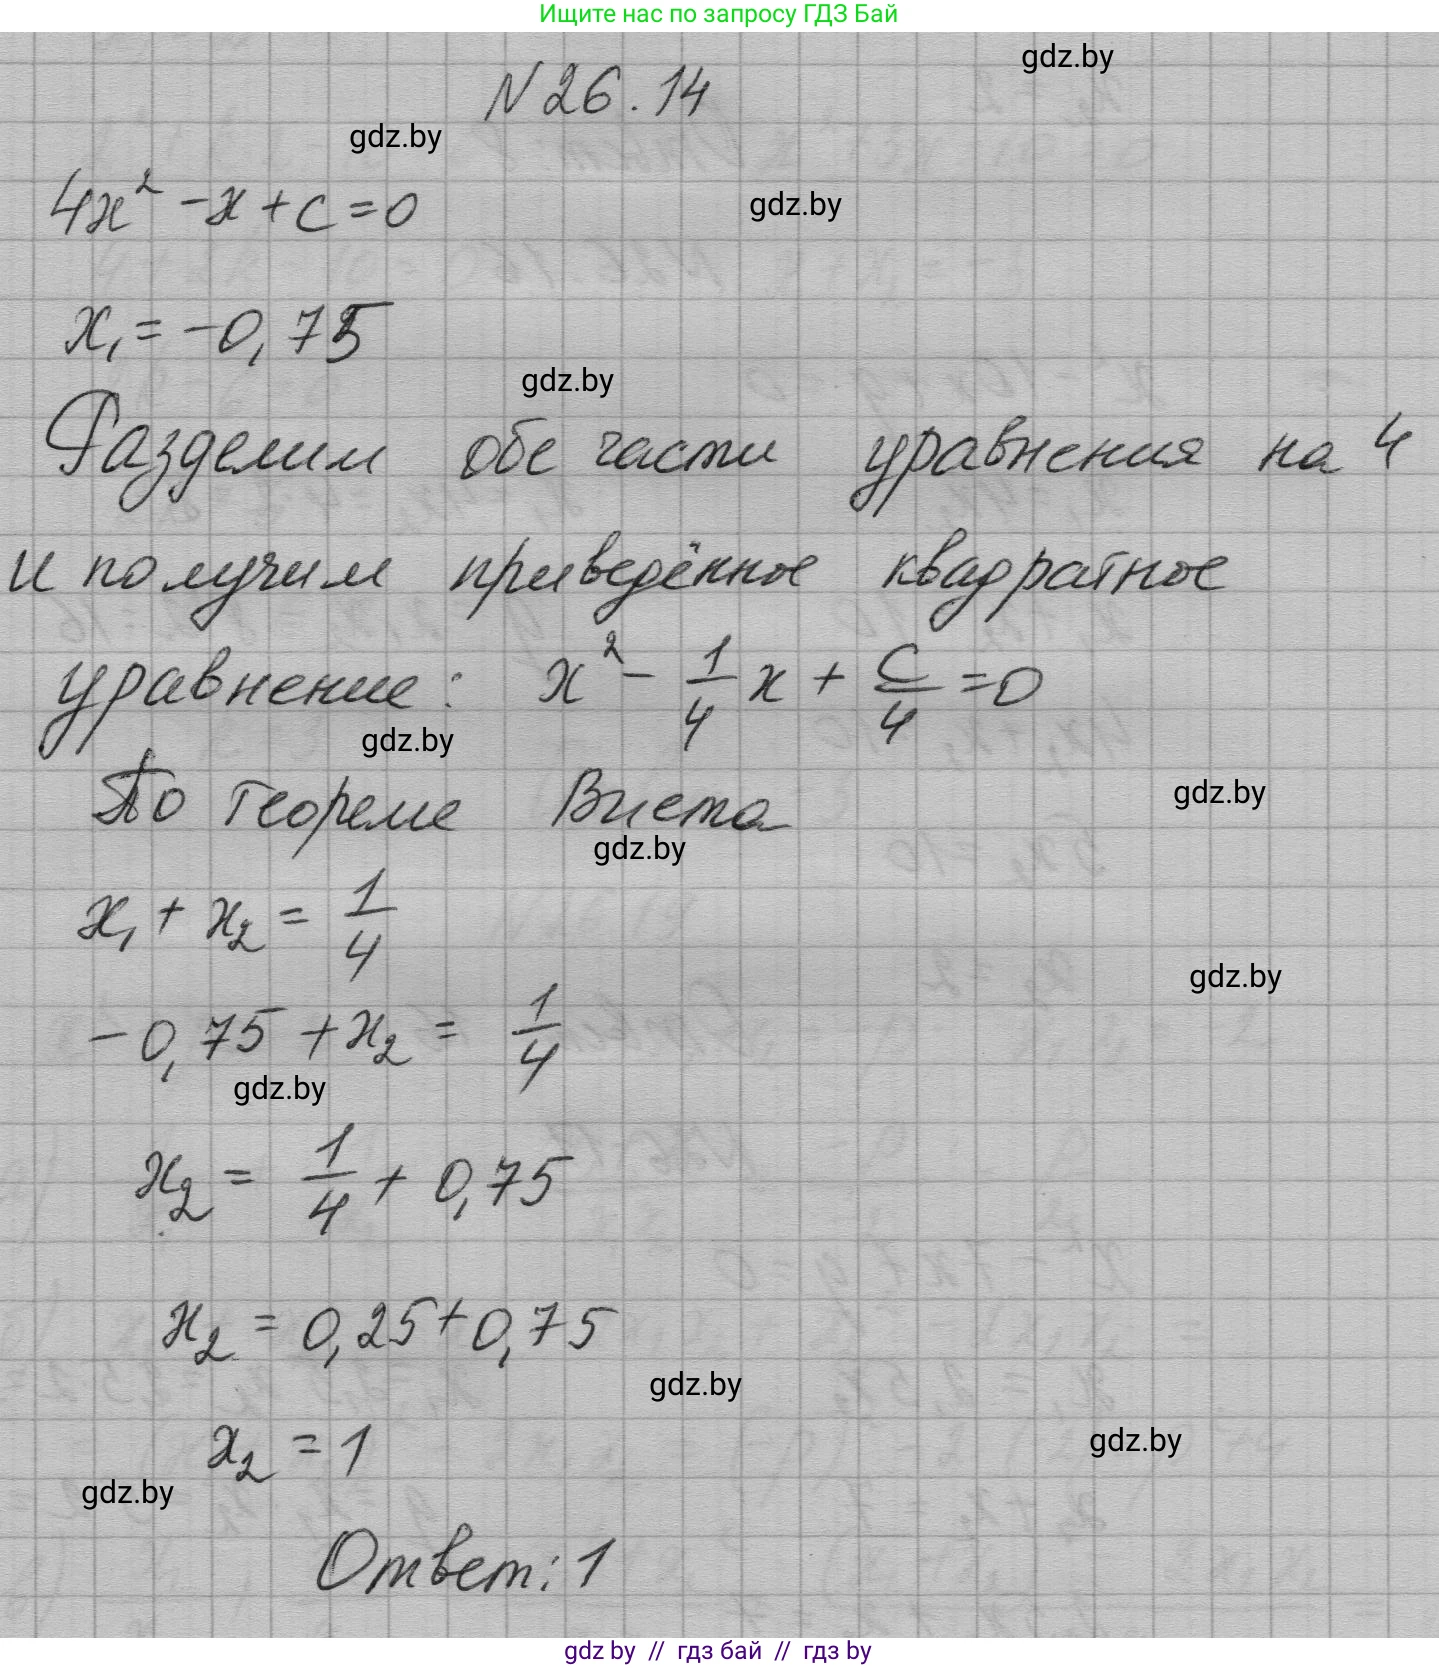 Ищите нас по запросу ГДЗ Бай
gdz.by
N 26.14
gdz.by
4x² - x + c = 0
gdz.by
x₁ = -0,75
gdz.by
Разделим обе части уравнения на 4
и получим приведённое квадратное
уравнение: x² - 1/4 x + c/4 = 0
gdz.by
По теореме Виета
gdz.by
gdz.by
x₁ + x₂ = 1/4
gdz.by
-0,75 + x₂ = 1/4
gdz.by
x₂ = 1/4 + 0,75
x₂ = 0,25 + 0,75
gdz.by
x₂ = 1
gdz.by
gdz.by
Ответ: 1
gdz by // гдз бай // гдз by